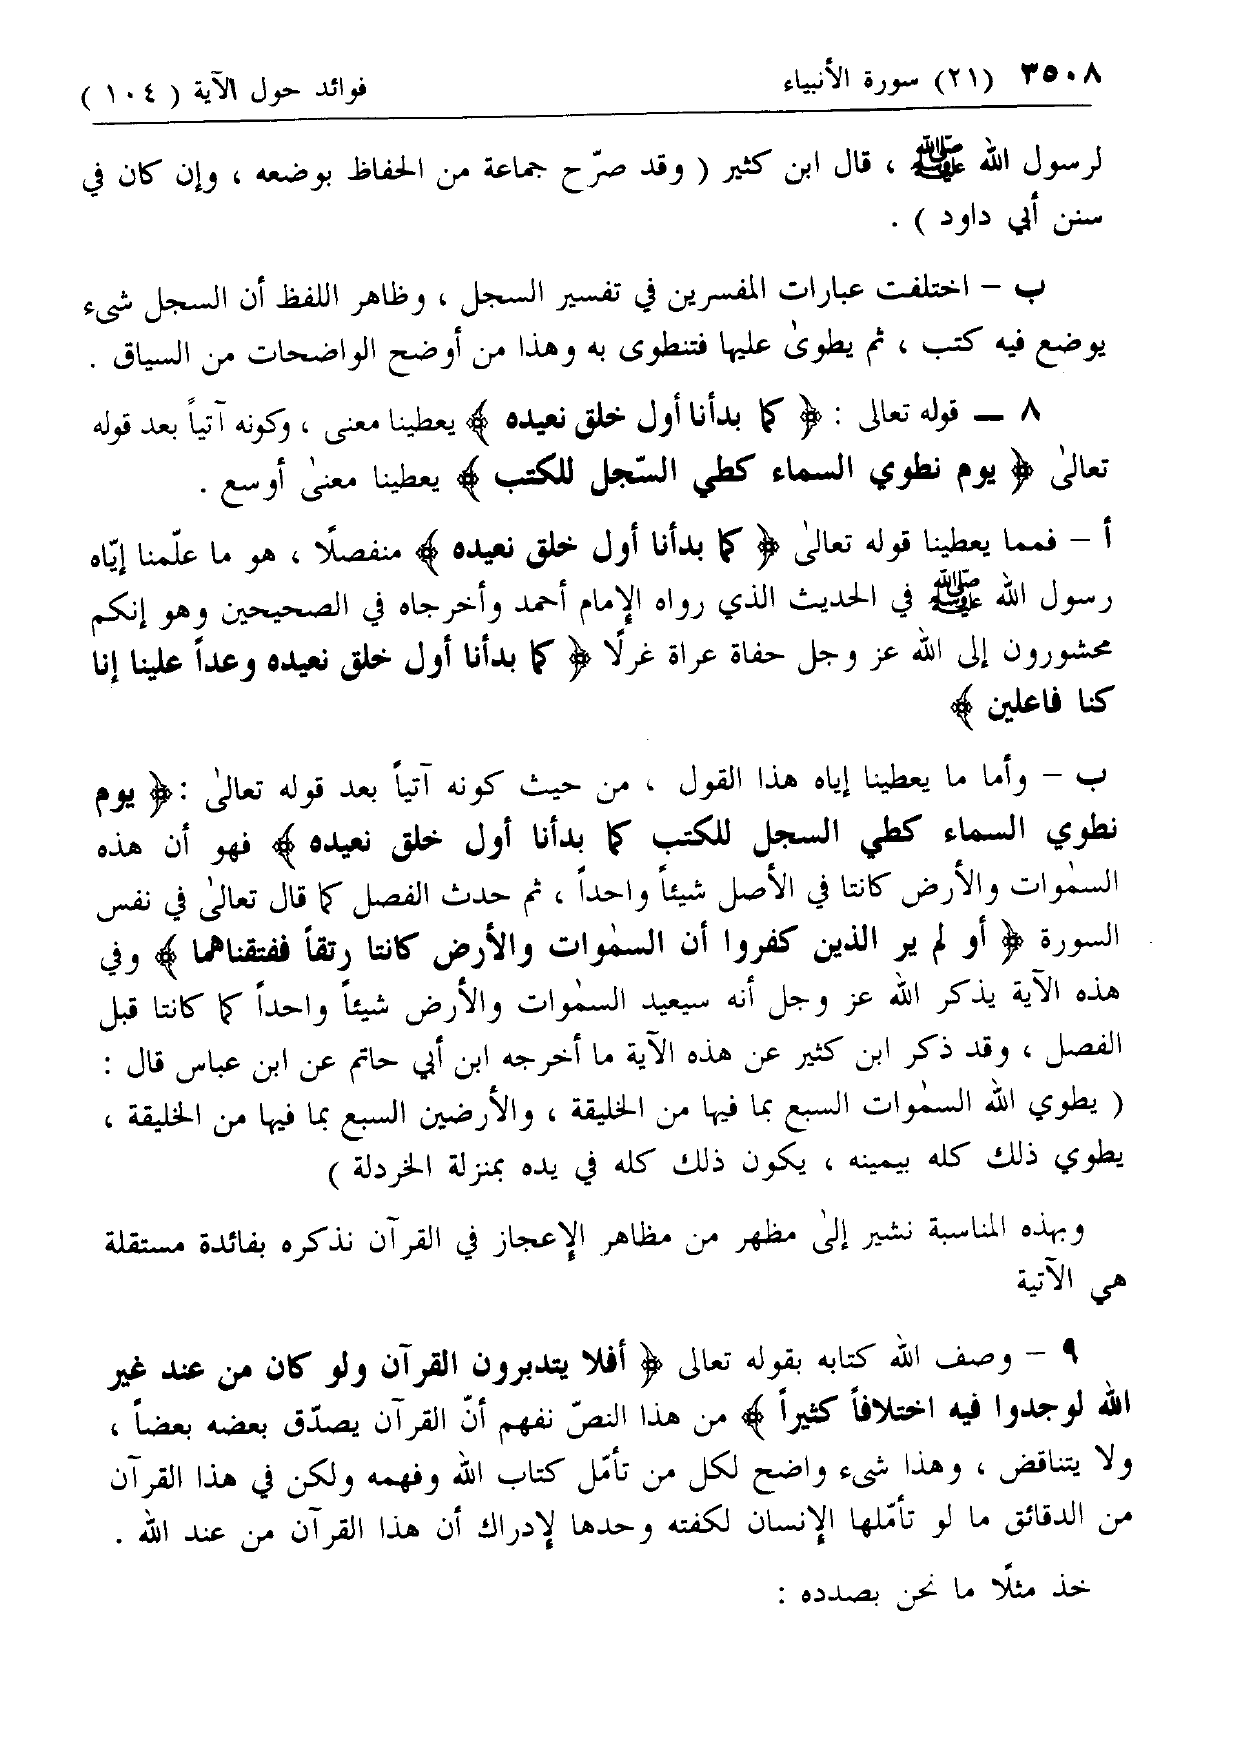 ٣٥٠٨ (٢١) سورة الأنبياء فوائد حول الآية ( ١٠٤ )
لرسول الله ﷺ ، قال ابن كثير ( وقد صرّح جماعة من الحفاظ بوضعه ، وإن كان في
سنن أبي داود ) .
ب – اختلفت عبارات المفسرين في تفسير السجل ، وظاهر اللفظ أن السجل شىء
يوضع فيه كتب ، ثم يطوىٰ عليها فتنطوى به وهذا من أوضح الواضحات من السياق .
٨ – قوله تعالى : ﴿ كما بدأنا أول خلق نعيده ﴾ يعطينا معنى ، وكونه آتياً بعد قوله
تعالىٰ ﴿ يوم نطوي السماء كطي السّجل للكتب ﴾ يعطينا معنىٰ أوسع .
أ – فمما يعطينا قوله تعالىٰ ﴿ كما بدأنا أول خلق نعيده ﴾ منفصلًا ، هو ما علّمنا إيّاه
رسول الله ﷺ في الحديث الذي رواه الإمام أحمد وأخرجاه في الصحيحين وهو إنكم
محشورون إلى الله عز وجل حفاة عراة غرلًا ﴿ كما بدأنا أول خلق نعيده وعداً علينا إنا
كنا فاعلين ﴾
ب – وأما ما يعطينا إياه هذا القول ، من حيث كونه آتياً بعد قوله تعالىٰ : ﴿ يوم
نطوي السماء كطي السجل للكتب كما بدأنا أول خلق نعيده ﴾ فهو أن هذه
السمٰوات والأرض كانتا في الأصل شيئاً واحداً ، ثم حدث الفصل كما قال تعالىٰ في نفس
السورة ﴿ أو لم ير الذين كفروا أن السمٰوات والأرض كانتا رتقاً ففتقناهما ﴾ وفي
هذه الآية يذكر الله عز وجل أنه سيعيد السمٰوات والأرض شيئاً واحداً كما كانتا قبل
الفصل ، وقد ذكر ابن كثير عن هذه الآية ما أخرجه ابن أبي حاتم عن ابن عباس قال :
( يطوي الله السمٰوات السبع بما فيها من الخليقة ، والأرضين السبع بما فيها من الخليقة ،
يطوي ذلك كله بيمينه ، يكون ذلك كله في يده بمنزلة الخردلة )
وبهذه المناسبة نشير إلىٰ مظهر من مظاهر الإعجاز في القرآن نذكره بفائدة مستقلة
هي الآتية
٩ – وصف الله كتابه بقوله تعالى ﴿ أفلا يتدبرون القرآن ولو كان من عند غير
الله لوجدوا فيه اختلافاً كثيراً ﴾ من هذا النصّ نفهم أنّ القرآن يصدّق بعضه بعضاً ،
ولا يتناقض ، وهذا شىء واضح لكل من تأمّل كتاب الله وفهمه ولكن في هذا القرآن
من الدقائق ما لو تأمّلها الإنسان لكفته وحدها لإدراك أن هذا القرآن من عند الله .
خذ مثلًا ما نحن بصدده :